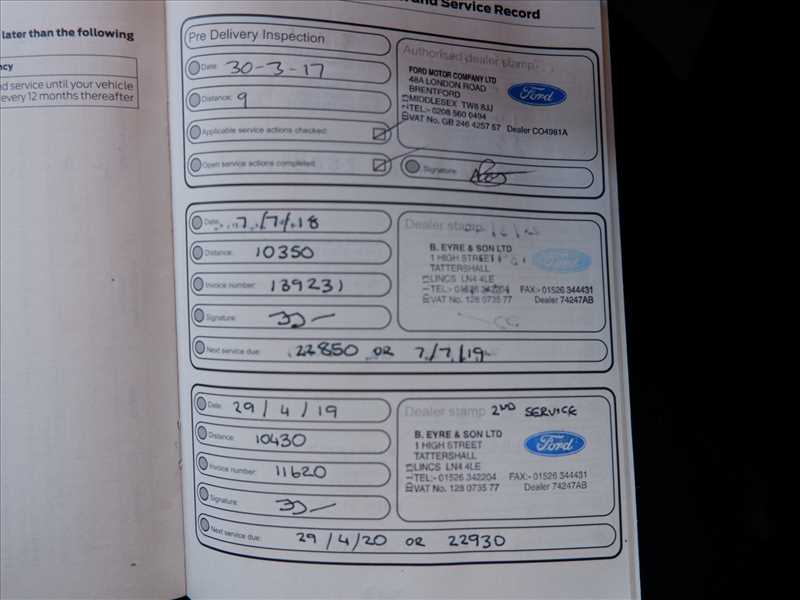 and Service Record
later than the following
ncy
nd service until your vehicle
every 12 months thereafter
Pre Delivery Inspection
Date: 30-3-17
Distance: 9
Applicable service actions checked:
Open service actions completed:
Authorised dealer stamp
FORD MOTOR COMPANY LTD
48A LONDON ROAD
BRENTFORD
MIDDLESEX TW8 8JJ
TEL:- 0208 560 0494
VAT No. GB 246 4257 57 Dealer CO4981A
Ford
Signature:
Date: 7/7/18
Distance: 10350
Invoice number: 139231
Signature:
Next service due: 22850 OR 7/7/19
Dealer stamp
B. EYRE & SON LTD
1 HIGH STREET
TATTERSHALL
LINCS LN4 4LE
TEL:- 01526 342204 FAX:- 01526 344431
VAT No. 128 0735 77 Dealer 74247AB
Ford
Date: 29/4/19
Distance: 10430
Invoice number: 11620
Signature:
Next service due: 29/4/20 OR 22930
Dealer stamp 2ND SERVICE
B. EYRE & SON LTD
1 HIGH STREET
TATTERSHALL
LINCS LN4 4LE
TEL:- 01526 342204 FAX:- 01526 344431
VAT No. 128 0735 77 Dealer 74247AB
Ford